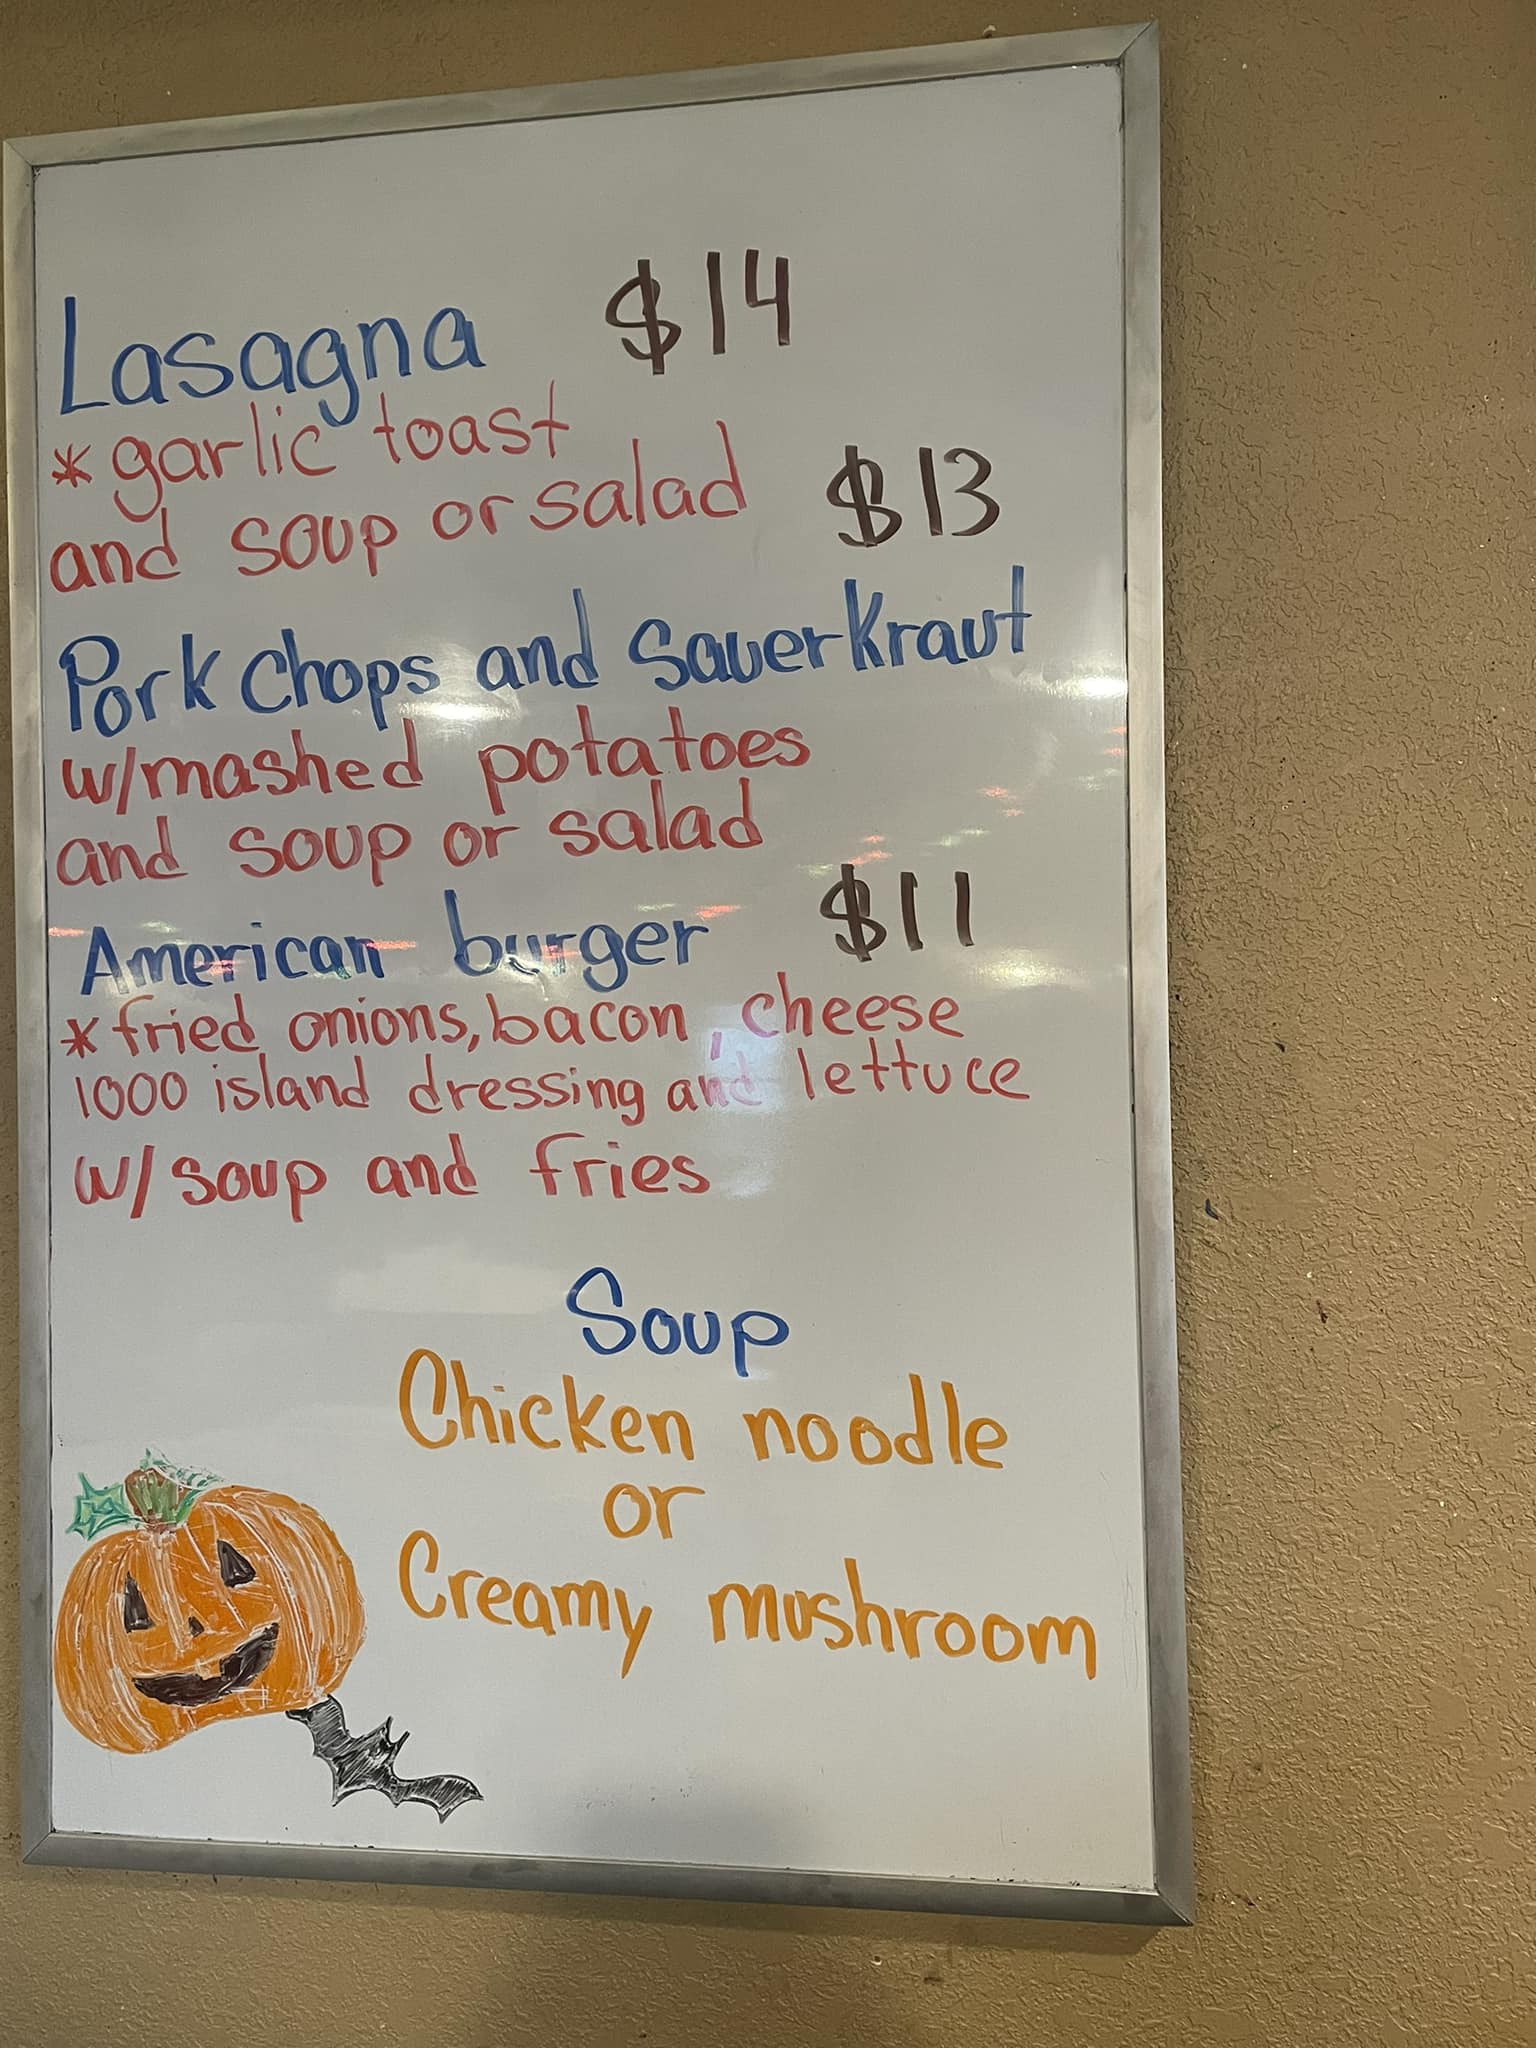 Lasagna $14
*garlic toast
and soup or salad
$13
Pork chops and Sauerkraut
w/mashed potatoes
and soup or salad
American burger $11
*fried onions, bacon, cheese
1000 island dressing and lettuce
w/soup and fries
Soup
Chicken noodle
or
Creamy mushroom